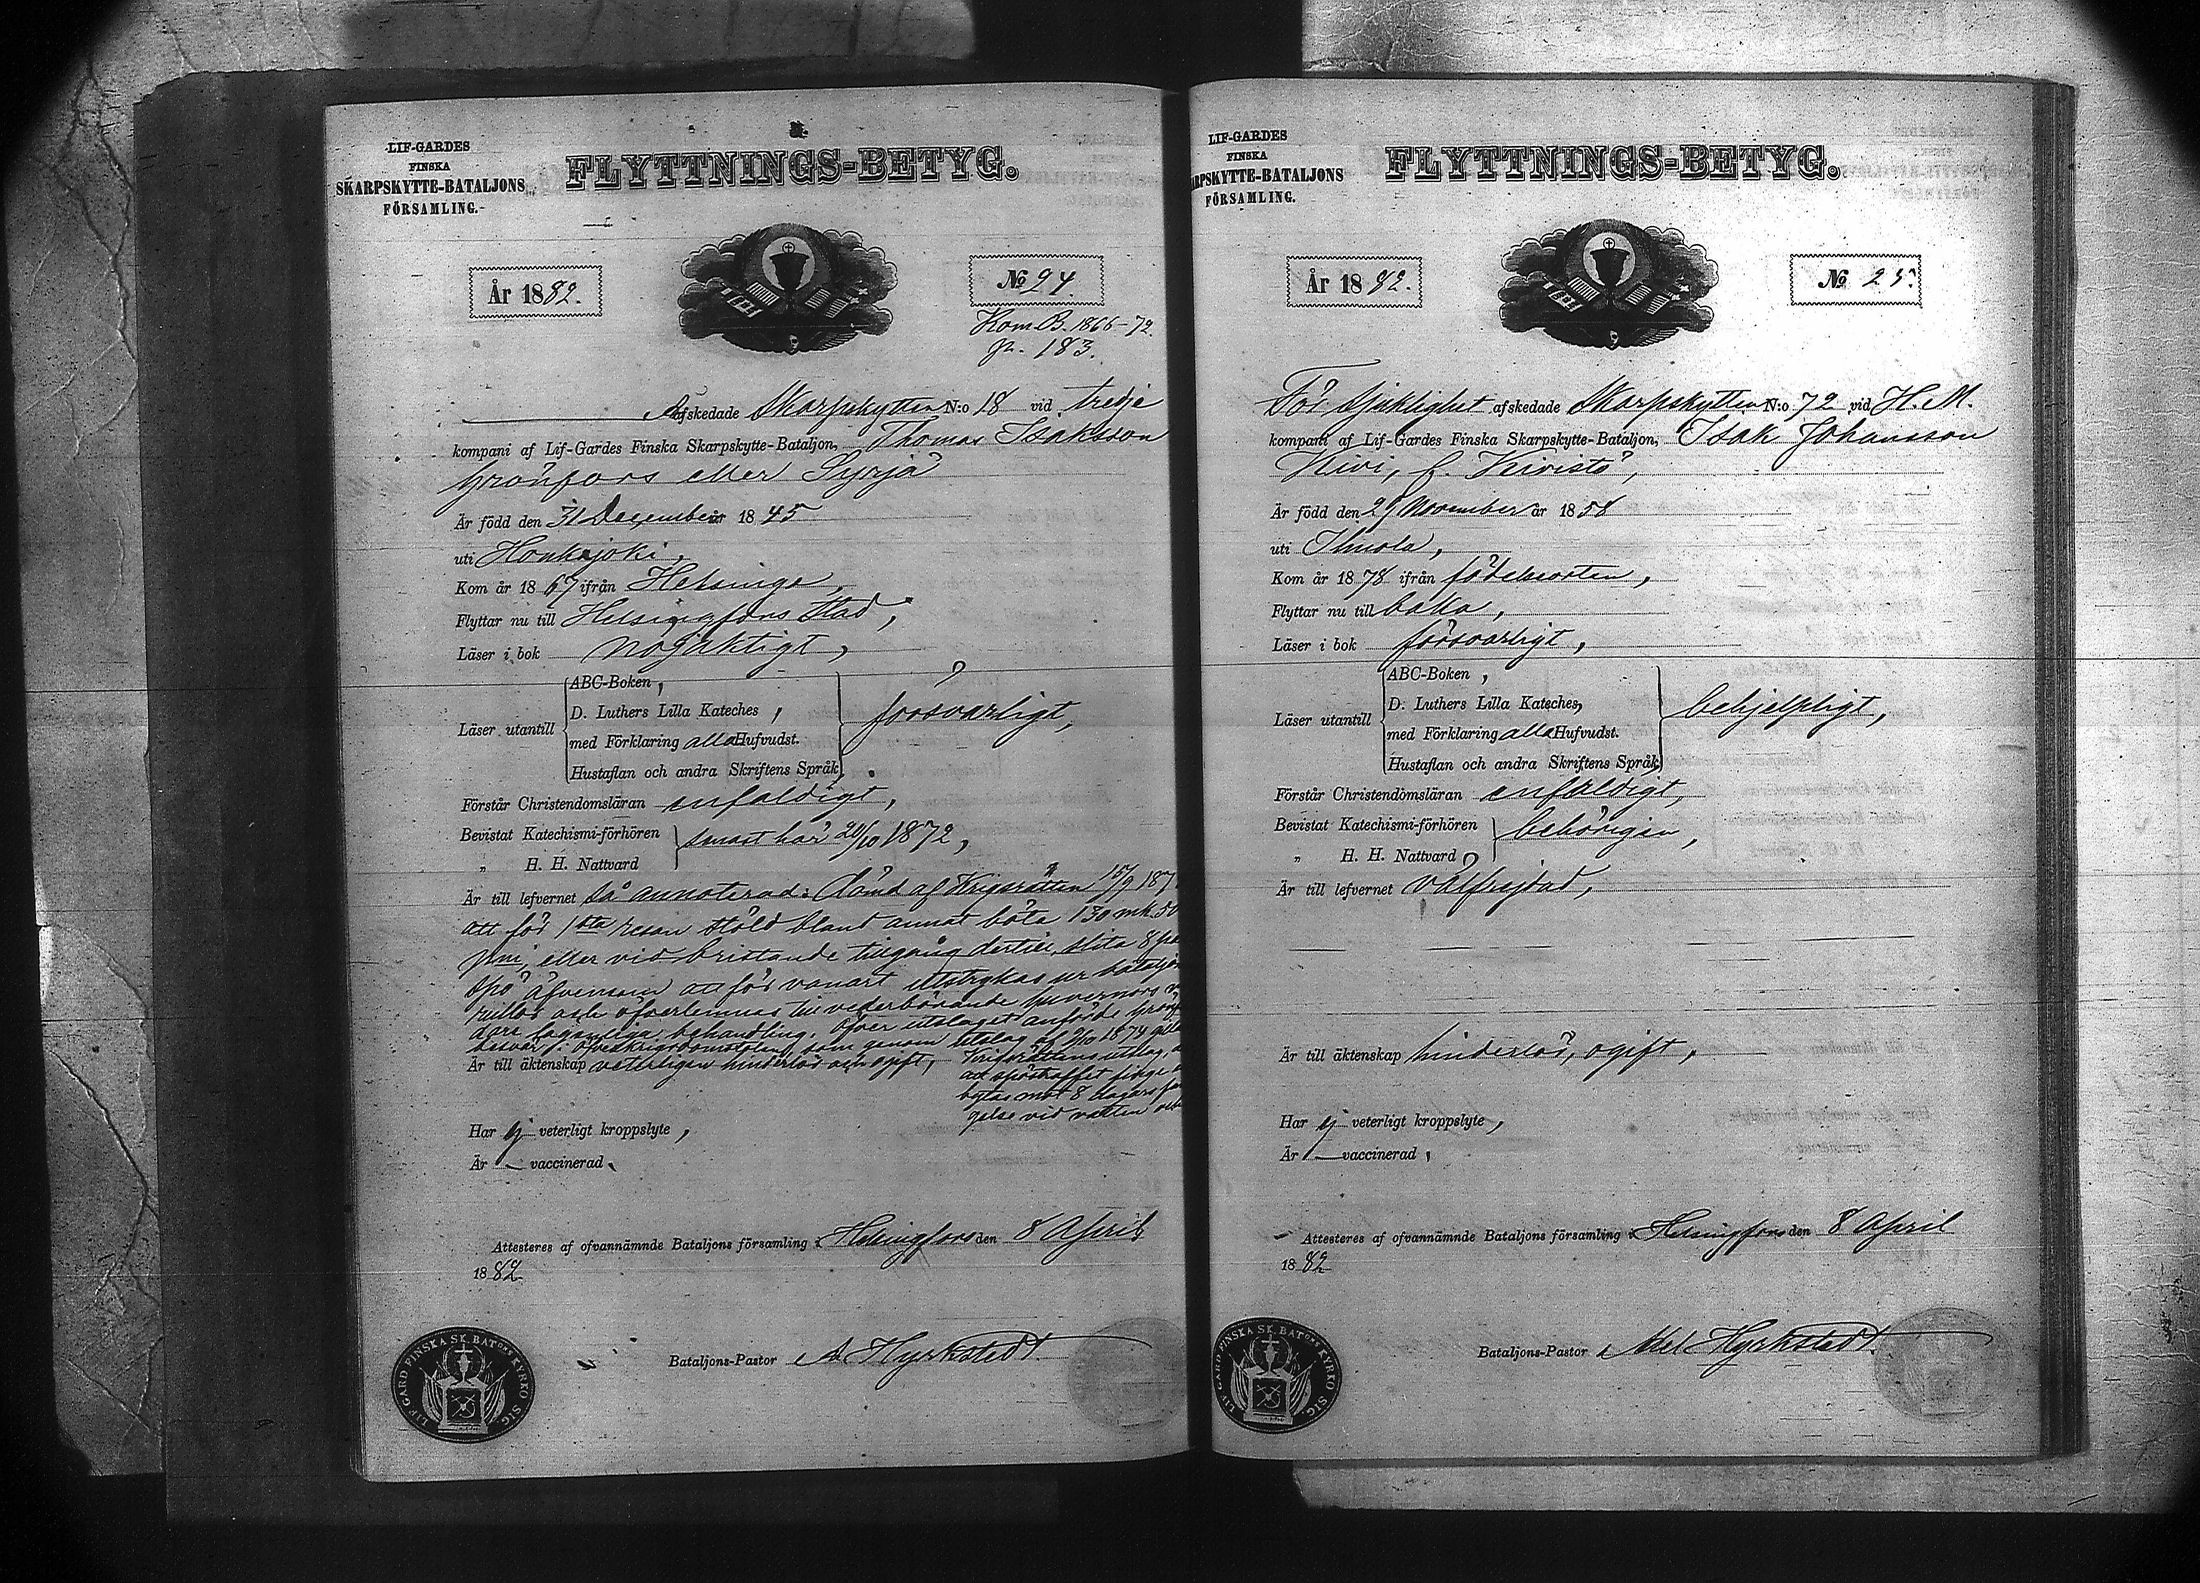 LIF-GARDES
FINSKA
SKARPSKYTTE-BATALJONS
FÖRSAMLING.
FLYTTNINGS-BETYG.
År 1882.
No 24.
Kom. B. 1866-72.
p. 183.
Afskedade Skarpskytten N:o 18 vid tredje
kompani af Lif-Gardes Finska Skarpskytte-Bataljon, Thomas Isaksson
Grönfors eller Syrjä
Är född den 31 December år 1845
uti Honkajoki,
Kom år 1867 ifrån Helsinge,
Flyttar nu till Helsingfors Stad,
Läser i bok nöjaktigt,
Läser utantill
ABC-Boken,
D. Luthers Lilla Kateches,
med Förklaring alla Hufvudst.
Hustaflan och andra Skriftens Språk,
försvarligt,
Förstår Christendomsläran enfaldigt,
Bevistat Katechismi-förhören
„ H. H. Nattvard
senast här 20/10 1872,
Är till lefvernet så annoterad: Dömd af Krigsrätten 15/9 187
att för 1sta resan stöld bland annat böta 130 mk 50
pni, eller vid bristande tillgång dertill, slita 8 par
spö äfvensom att för vanart utstrykas ur bataljo
rullor och öfverlemnas till vederbörande guvernörs
behandling. Öfver utslaget anförde Grönf
besvär i som genom utslag af 9/10 1874 gillat
Krigsrättens utslag,
att spöstraffet skulle
bytas mot 8 dagars fän
gelse vid vatten och
Är till äktenskap veterligen hinderlös och ogift,
Har ej veterligt kroppslyte,
Är — vaccinerad.
Attesteres af ofvannämnde Bataljons församling i Helsingfors den 8 April
1882
Bataljons-Pastor A. Hyrkstedt.
LIF GARD FINSKA SK. BATONS KYRKO SIG.
LIF-GARDES
FINSKA
RPSKYTTE-BATALJONS
FÖRSAMLING.
FLYTTNINGS-BETYG.
År 1882.
No 25.
För Sjuklighet afskedade Skarpskytten N:o 72 vid H. M.
kompani af Lif-Gardes Finska Skarpskytte-Bataljon, Isak Johansson
Kivi, f. Kivistö,
Är född den 29 November år 1858
uti Ilmola,
Kom år 1878 ifrån födelseorten,
Flyttar nu till baka,
Läser i bok försvarligt,
Läser utantill
ABC-Boken,
D. Luthers Lilla Kateches,
med Förklaring alla Hufvudst.
Hustaflan och andra Skriftens Språk,
behjelpligt,
Förstår Christendomsläran enfaldigt,
Bevistat Katechismi-förhören
„ H. H. Nattvard
behörigen,
Är till lefvernet välfrejdad,
Är till äktenskap hinderlös, ogift,
Har ej veterligt kroppslyte,
Är — vaccinerad,
Attesteres af ofvannämnde Bataljons församling i Helsingfors den 8 April
1882
Bataljons-Pastor Axel Hyrkstedt.
LIF GARD FINSKA SK. BATONS KYRKO SIG.